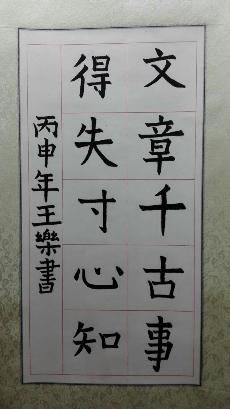 文章千古事
得失寸心知
丙申年王樂書